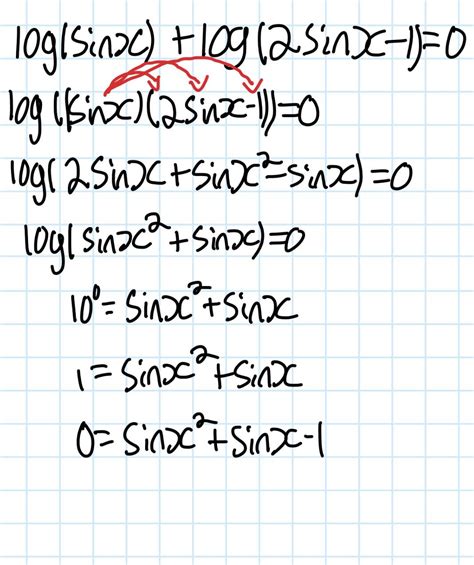 log(sinx) + log(2sinx-1)=0
log((sinx)(2sinx-1))=0
log(2sinx+sinx²-sinx)=0
log(sinx²+sinx)=0
10⁰=sinx²+sinx
1=sinx²+sinx
0=sinx²+sinx-1